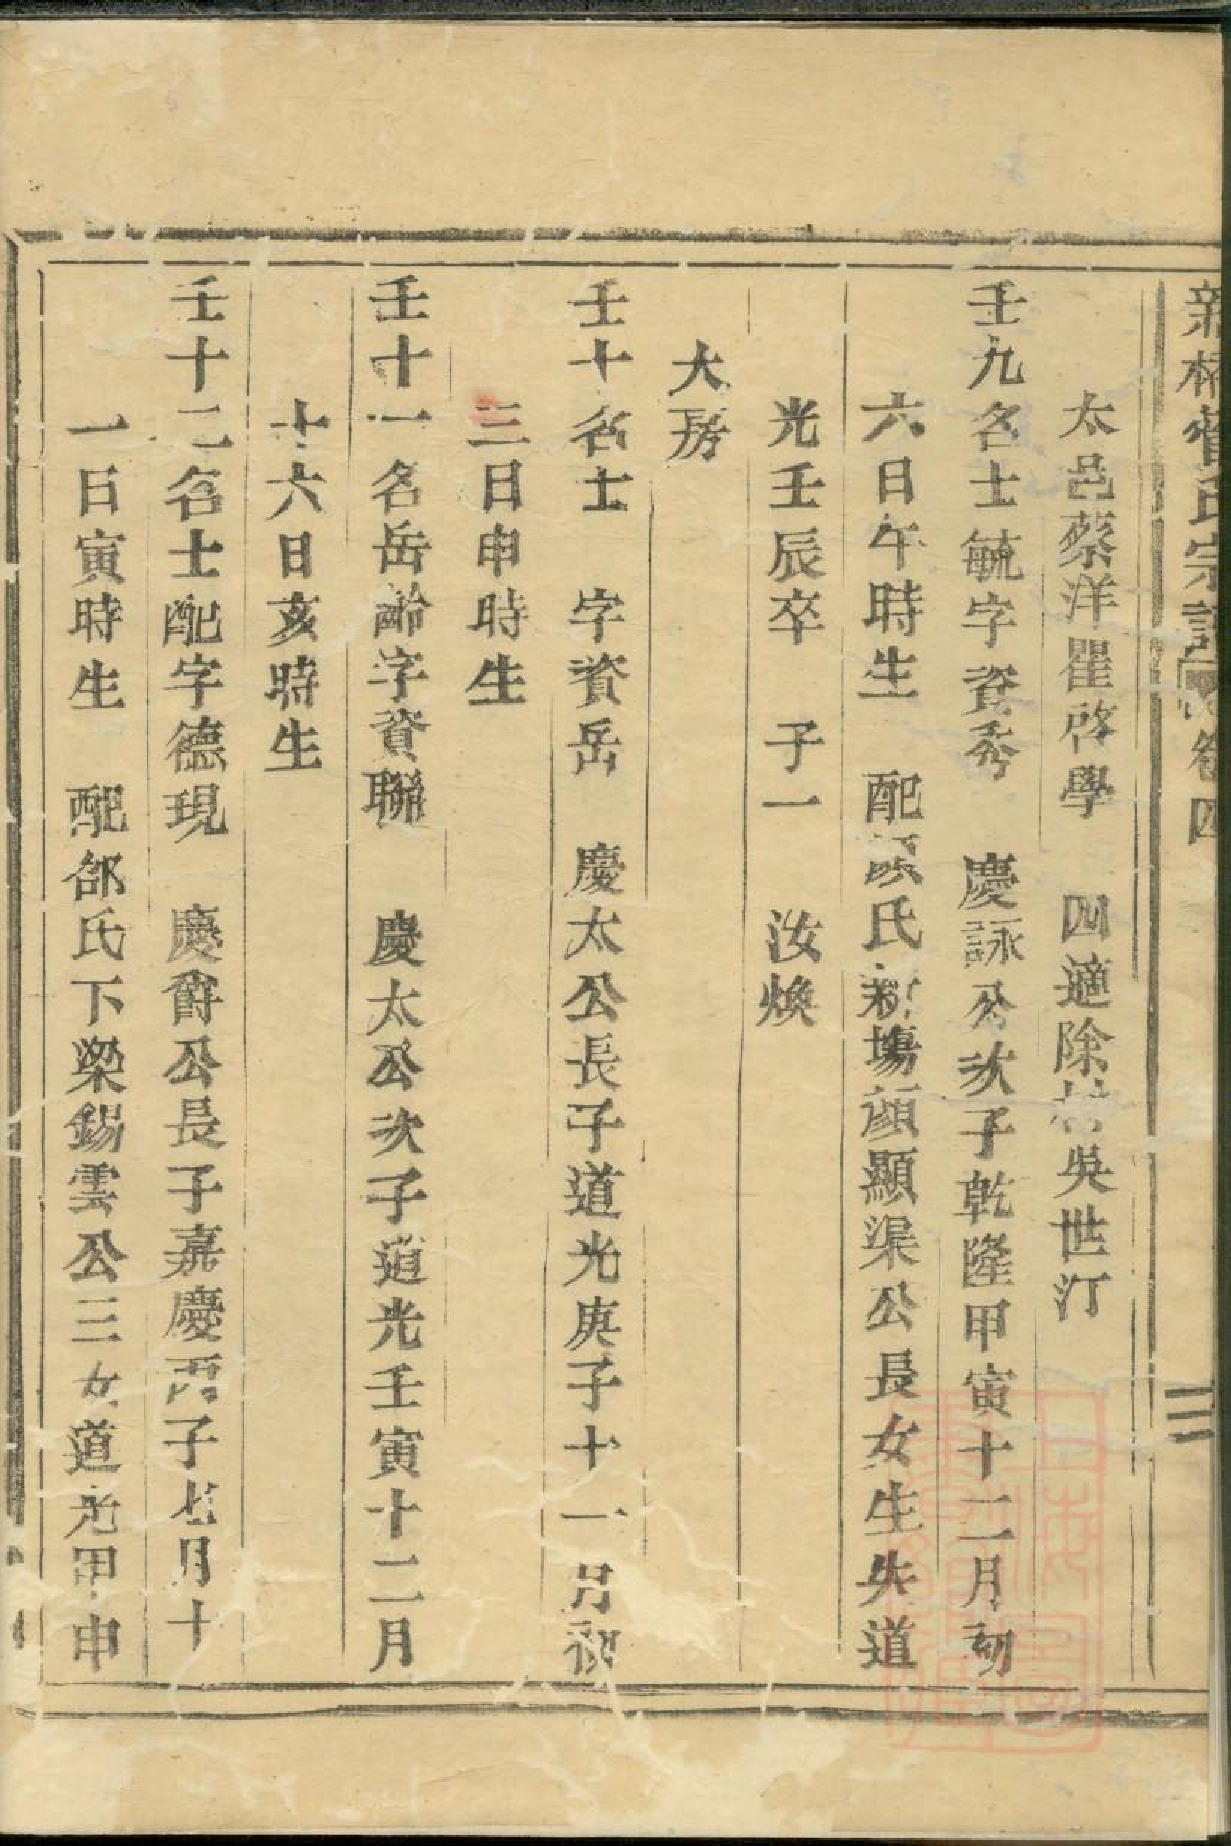 新橋管氏宗譜 卷四 三
太邑蔡洋瞿啓學 四適除村吳世汀
壬九名士毓字資秀 慶詠公次子乾隆甲寅十二月初
六日午時生 配顔氏新塲顔顯渠公長女生失道
光壬辰卒 子一 汝煥
大房
壬十名士 字資岳 慶太公長子道光庚子十一月初
三日申時生
壬十一名岳齡字資聯 慶太公次子道光壬寅十二月
十六日亥時生
壬十二名士配字德現 慶爵公長子嘉慶丙子七月十
一日寅時生 配郃氏下梁錫雲公三女道光甲申